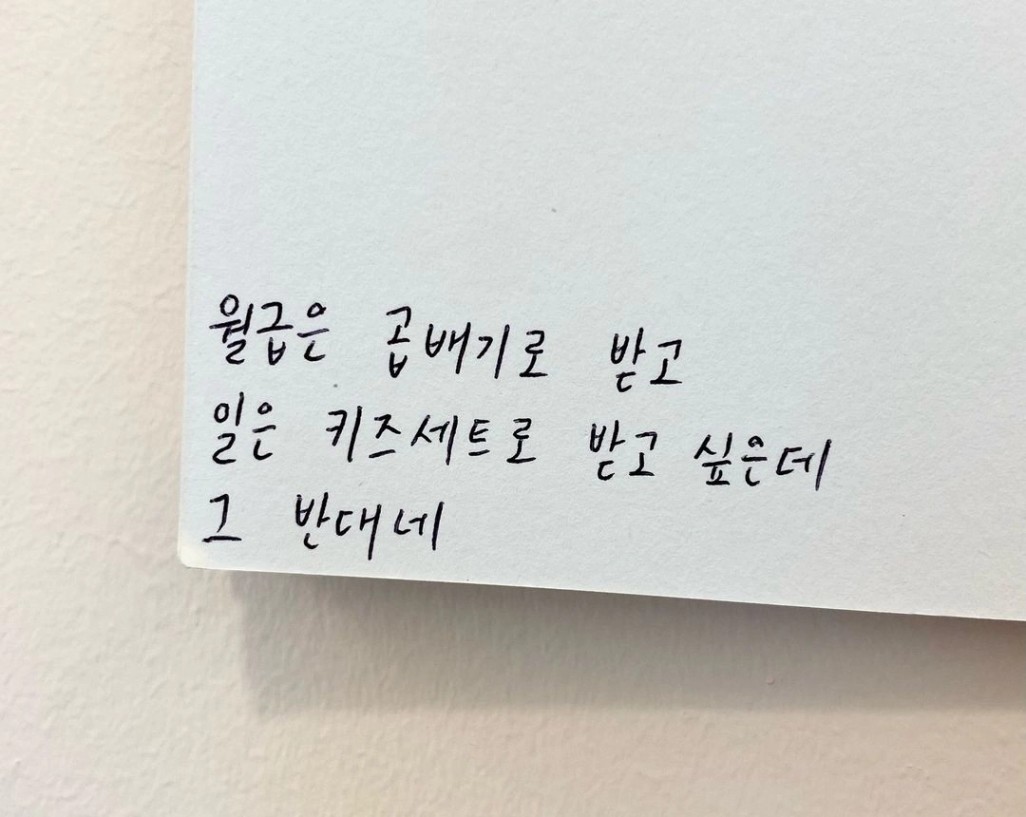 월급은 곱배기로 받고
일은 키즈세트로 받고 싶은데
그 반대네